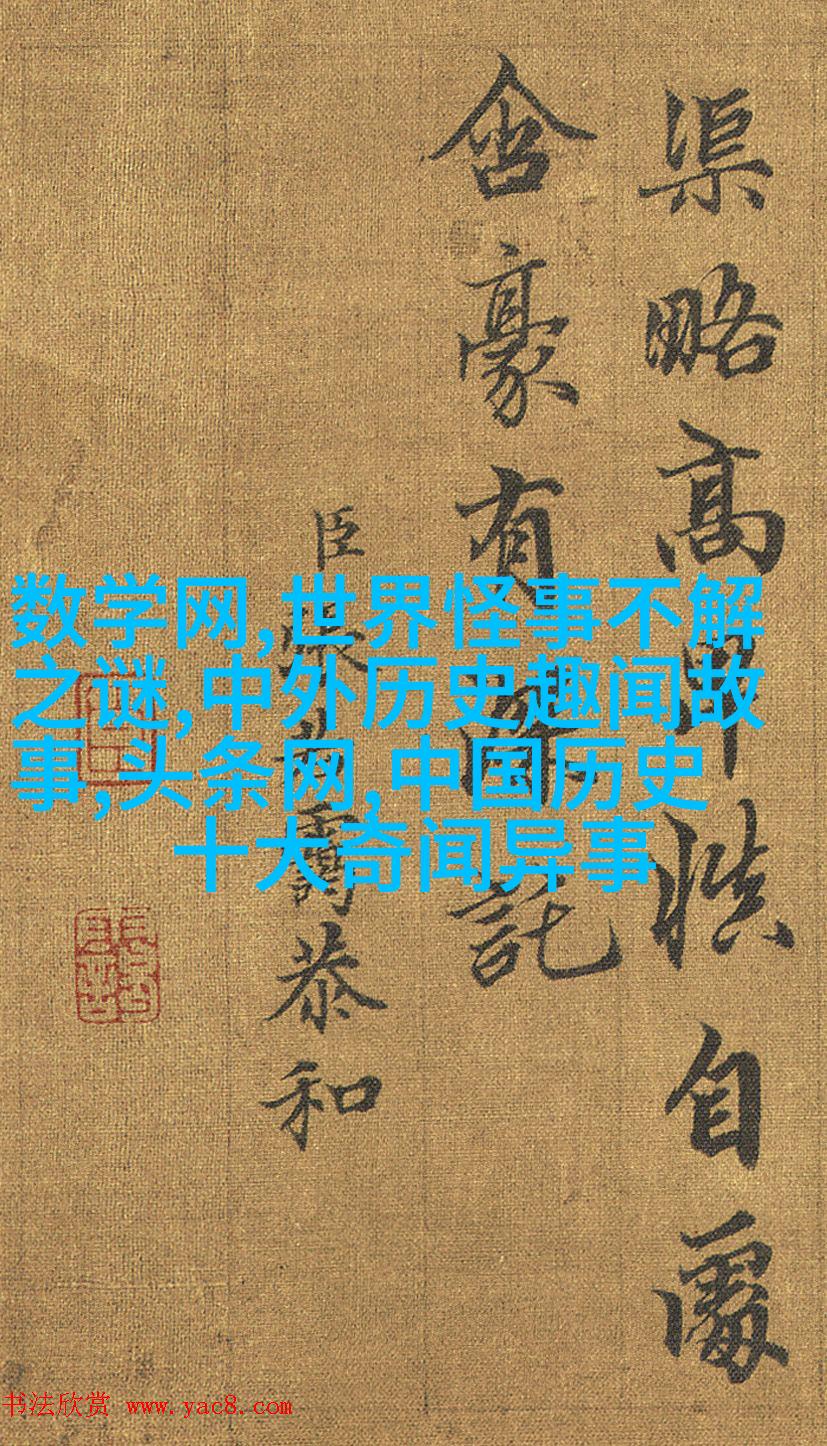 渠略髙卑慎自處
含豪有託
臣張若靄恭和
数学网,世界怪事不解
之谜,中外历史趣闻故
事,头条网,中国历史
十大奇闻异事
书法欣赏 www.yac8.com